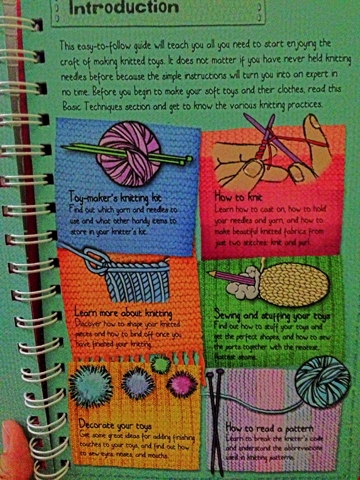 Introduction
This easy-to-follow guide will teach you all you need to start enjoying the
craft of making knitted toys. It does not matter if you have never held knitting
needles before because the simple instructions will turn you into an expert in
no time. Before you begin to make your soft toys and their clothes, read this
Basic Techniques section and get to know the various knitting practices.
Toy-maker's knitting kit
Find out which yarn and needles to
use and what other handy items to
store in your knitter's kit.
How to knit
Learn how to cast on, how to hold
your needles and yarn, and how to
make beautiful knitted fabrics from
just two stitches: knit and purl.
Learn more about knitting
Discover how to shape your knitted
pieces and how to bind off once you
have finished your knitting.
Sewing and stuffing your toys
Find out how to stuff your toys and
get the perfect shapes, and how to sew
the parts together with the neatest,
flattest seams.
Decorate your toys
Get some great ideas for adding finishing
touches to your toys, and find out how
to sew eyes, noses, and mouths.
How to read a pattern
Learn to break the knitter's code
and understand the abbreviations
used in knitting patterns.